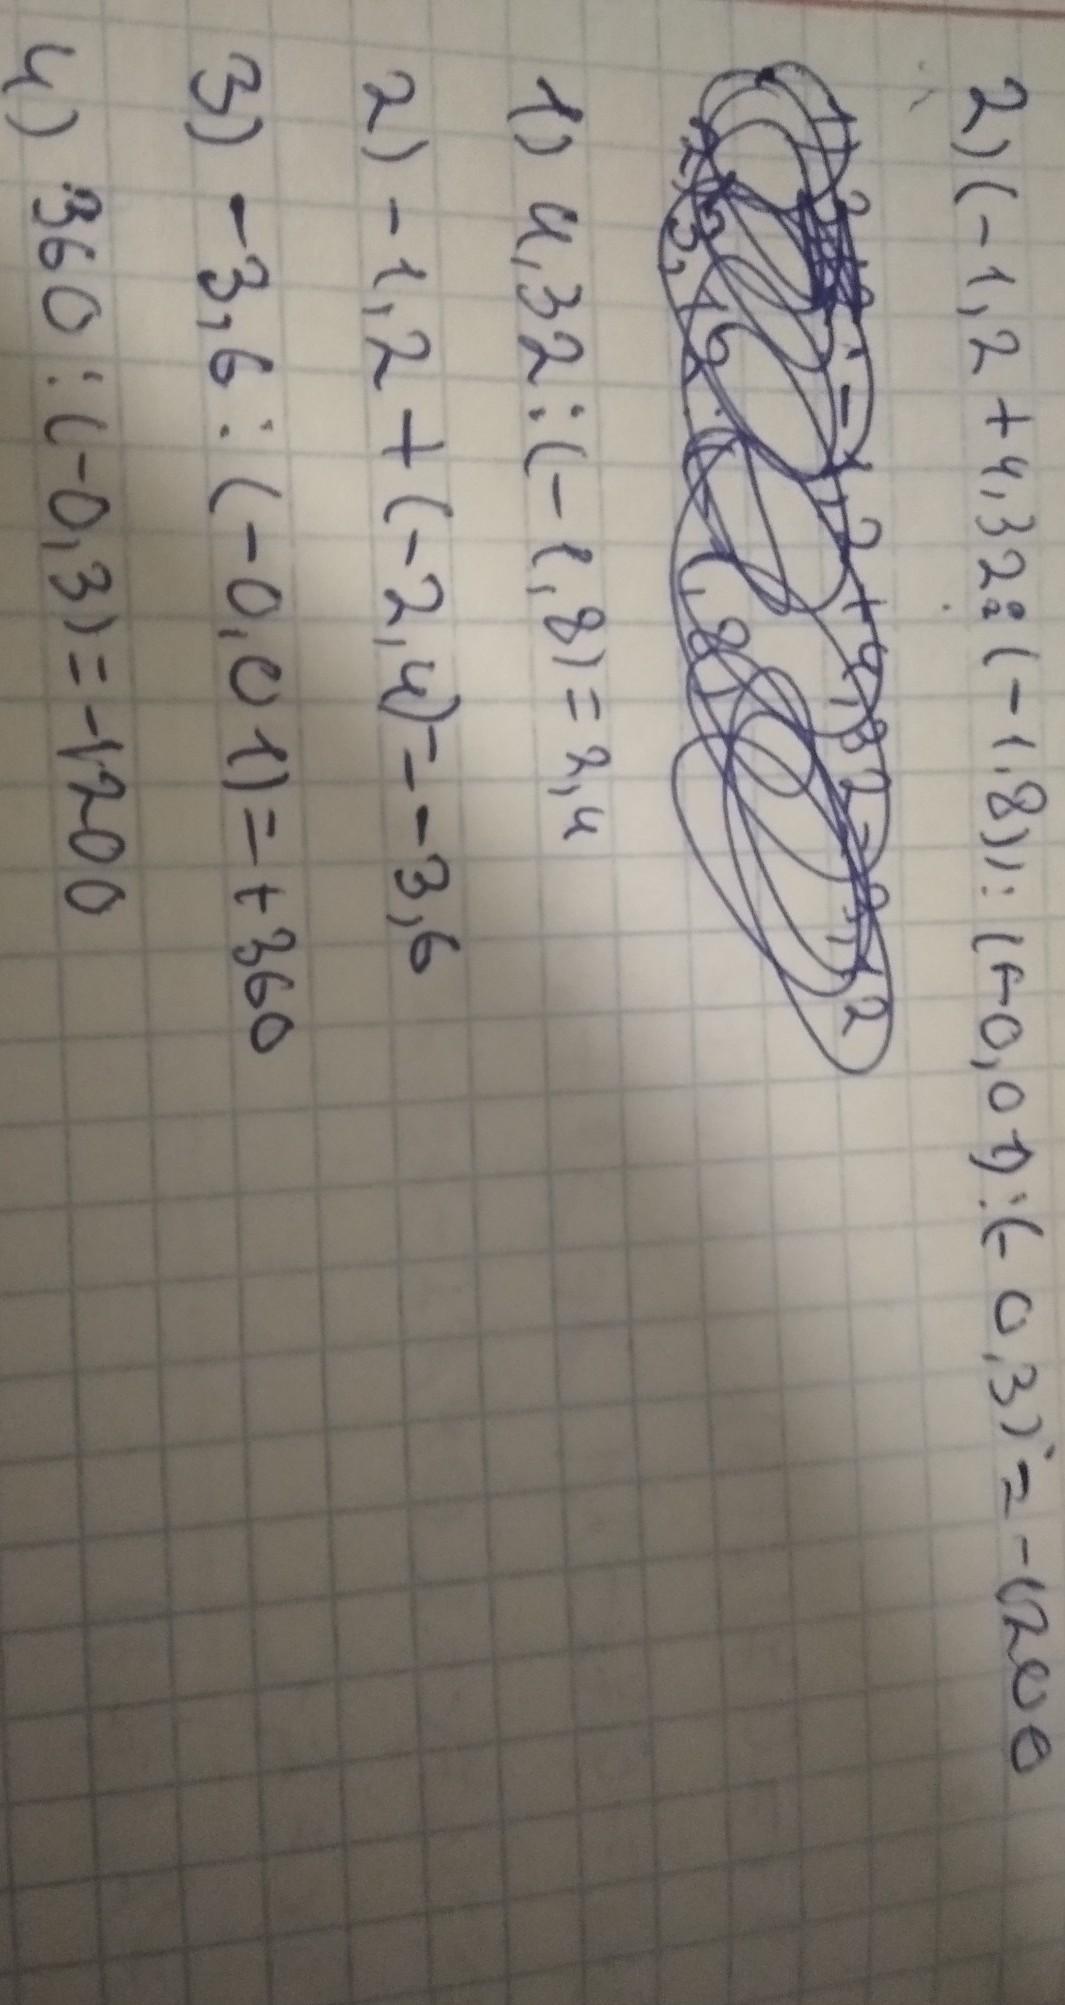 2) (-1,2 + 4,32 : (-1,8)) : (-0,01) : (-0,3) = -1200
1) 4,32 : (-1,8) = 2,4
2) -1,2 + (-2,4) = -3,6
3) -3,6 : (-0,01) = +360
4) 360 : (-0,3) = -1200